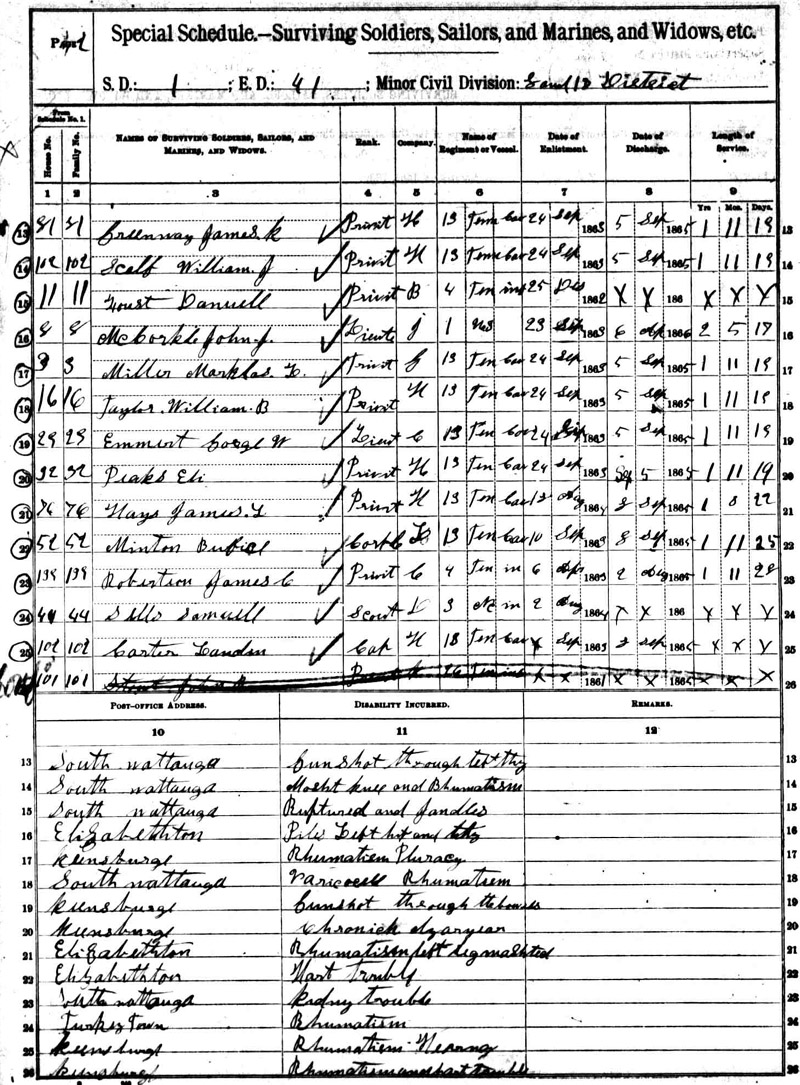 Page 2
Special Schedule.—Surviving Soldiers, Sailors, and Marines, and Widows, etc.
S. D.: 1 ; E. D.: 41 ; Minor Civil Division: District
From Schedule No. 1.
House No. Family No. NAMES OF SURVIVING SOLDIERS, SAILORS, AND MARINES, AND WIDOWS. Rank. Company. Name of Regiment or Vessel. Date of Enlistment. Date of Discharge. Length of Service.
1 2 3 4 5 6 7 8 9
Yrs Mos. Days.
13 81 81 Greenway James K Privit H 13 Tenn Cav 24 Sep 1863 5 Sep 1865 1 11 19 13
14 102 102 Scalf William J Privit H 13 Tenn Cav 24 Sep 1863 5 Sep 1865 1 11 19 14
15 11 11 Foust Danuell Privit B 4 Ten inf 25 1862 X X 186 X X X 15
16 8 8 McCorkle John J. Lieute 1 23 Sep 1863 6 1866 2 5 17 16
17 3 3 Miller Privit G 13 Ten Cav 24 Sep 1863 5 Sep 1865 1 11 19 17
18 16 16 Taylor William B Privit H 13 Ten Cav 24 Sep 1863 5 Sep 1865 1 11 19 18
19 29 29 Emmert Gorge W Lieut C 13 Ten Cav 24 Sep 1863 5 Sep 1865 1 11 19 19
20 32 32 Peaks Eli Privit H 13 Ten Cav 24 Sep 1863 Sep 5 1865 1 11 19 20
21 76 76 Hays James L Privit H 13 Ten Cav 12 Aug 1864 Sep 1865 1 22 21
22 52 52 Minton 13 Ten Cav 10 Sep 1863 8 Sep 1865 1 11 25 22
23 139 139 Robertson James C Privit C 4 Ten in 6 1863 2 Aug 1865 1 11 28 23
24 44 44 Sells Samuell Scout D 3 NC in 2 Aug 1864 X X 186 X X X 24
25 102 102 Carter Landon Cap H 13 Ten Cav X Sep 1863 Sep 1865 X X X 25
101 101 Ten inf X X 1861 X X 186 X X X 26
POST-OFFICE ADDRESS. DISABILITY INCURRED. REMARKS.
10 11 12
13 South wattauga Gunshot through left thy 13
14 South wattauga knee and Rhumatism 14
15 South wattauga Ruptured and Janders 15
16 Elizabethton Piles and 16
17 Keensburge Rhumatism Pluracy 17
18 South wattauga Varicocell Rhumatism 18
19 Keensburge Gunshot through the bowels 19
20 Keensburge Chronick 20
21 Elizabethton Rhumatism left leg mashted 21
22 Elizabethton Hart Trouble 22
23 South wattauga Kidny trouble 23
24 Turkey Town Rhumatism 24
25 Keensburge Rhumatism Hearing 25
26 Keensburge Rhumatism and hart trouble 26